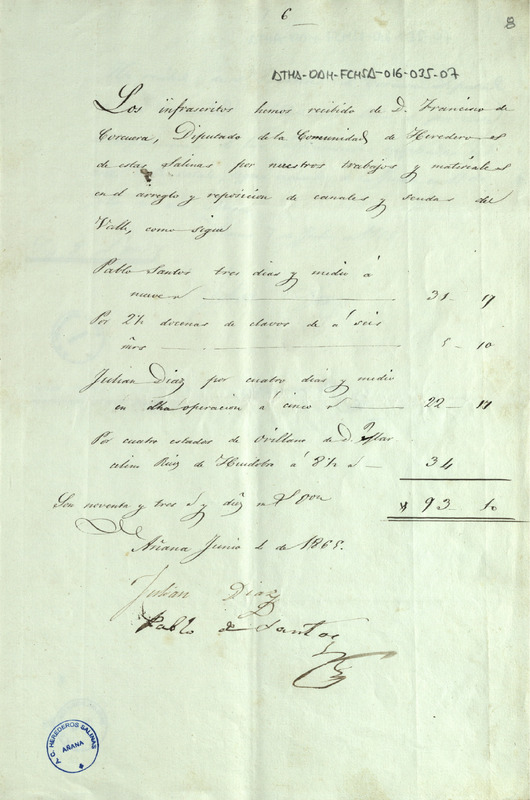 6
8
ATHA-DAH-FCHSA-016-035-07
Los infrascritos hemos recibido de D. Francisco de
Corcuera, Diputado de la Comunidad de Heredero el
de estas Salinas por nuestros trabajos y materiale el
en el arreglo y reposicion de canales y sendas del
Valle, como sigue
Pablo Santos tres dias y medio á
nueve r 31 - 17
Por 2½ docenas de clavos de á seis
mrs 10
Julian Diaz por cuatro dias y medio
en dha operacion á cinco r 22 - 17
Por cuatro estados de Orillano de D. Mar
celino Ruiz de Huidobro á 8½ r 34
Son noventa y tres r y diez m 93 - 10
Añana Junio de 1865.
Julian Diaz
Pablo de Santos
T. C. HEREDEROS SALINAS
AÑANA